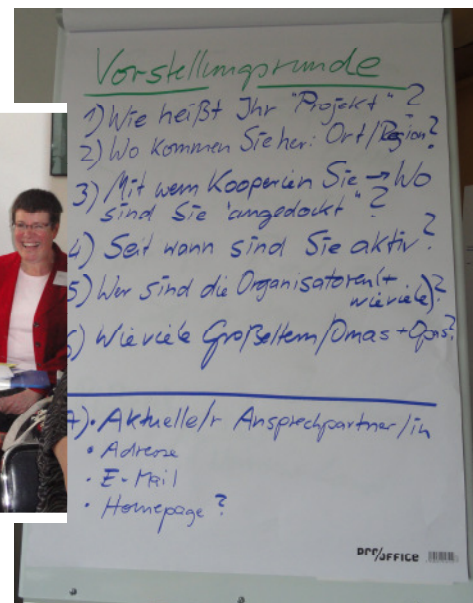 Vorstellungsrunde
1) Wie heißt Ihr "Projekt"?
2) Wo kommen Sie her: Ort/Region?
3) Mit wem Kooperieren Sie → Wo
sind Sie "angedockt"?
4) Seit wann sind Sie aktiv?
5) Wer sind die Organisatoren (+
wieviele)?
6) Wieviele Großeltern/Omas + Opas?
7) • Aktuelle/r Ansprechpartner/in
• Adresse
• E-Mail
• Homepage?